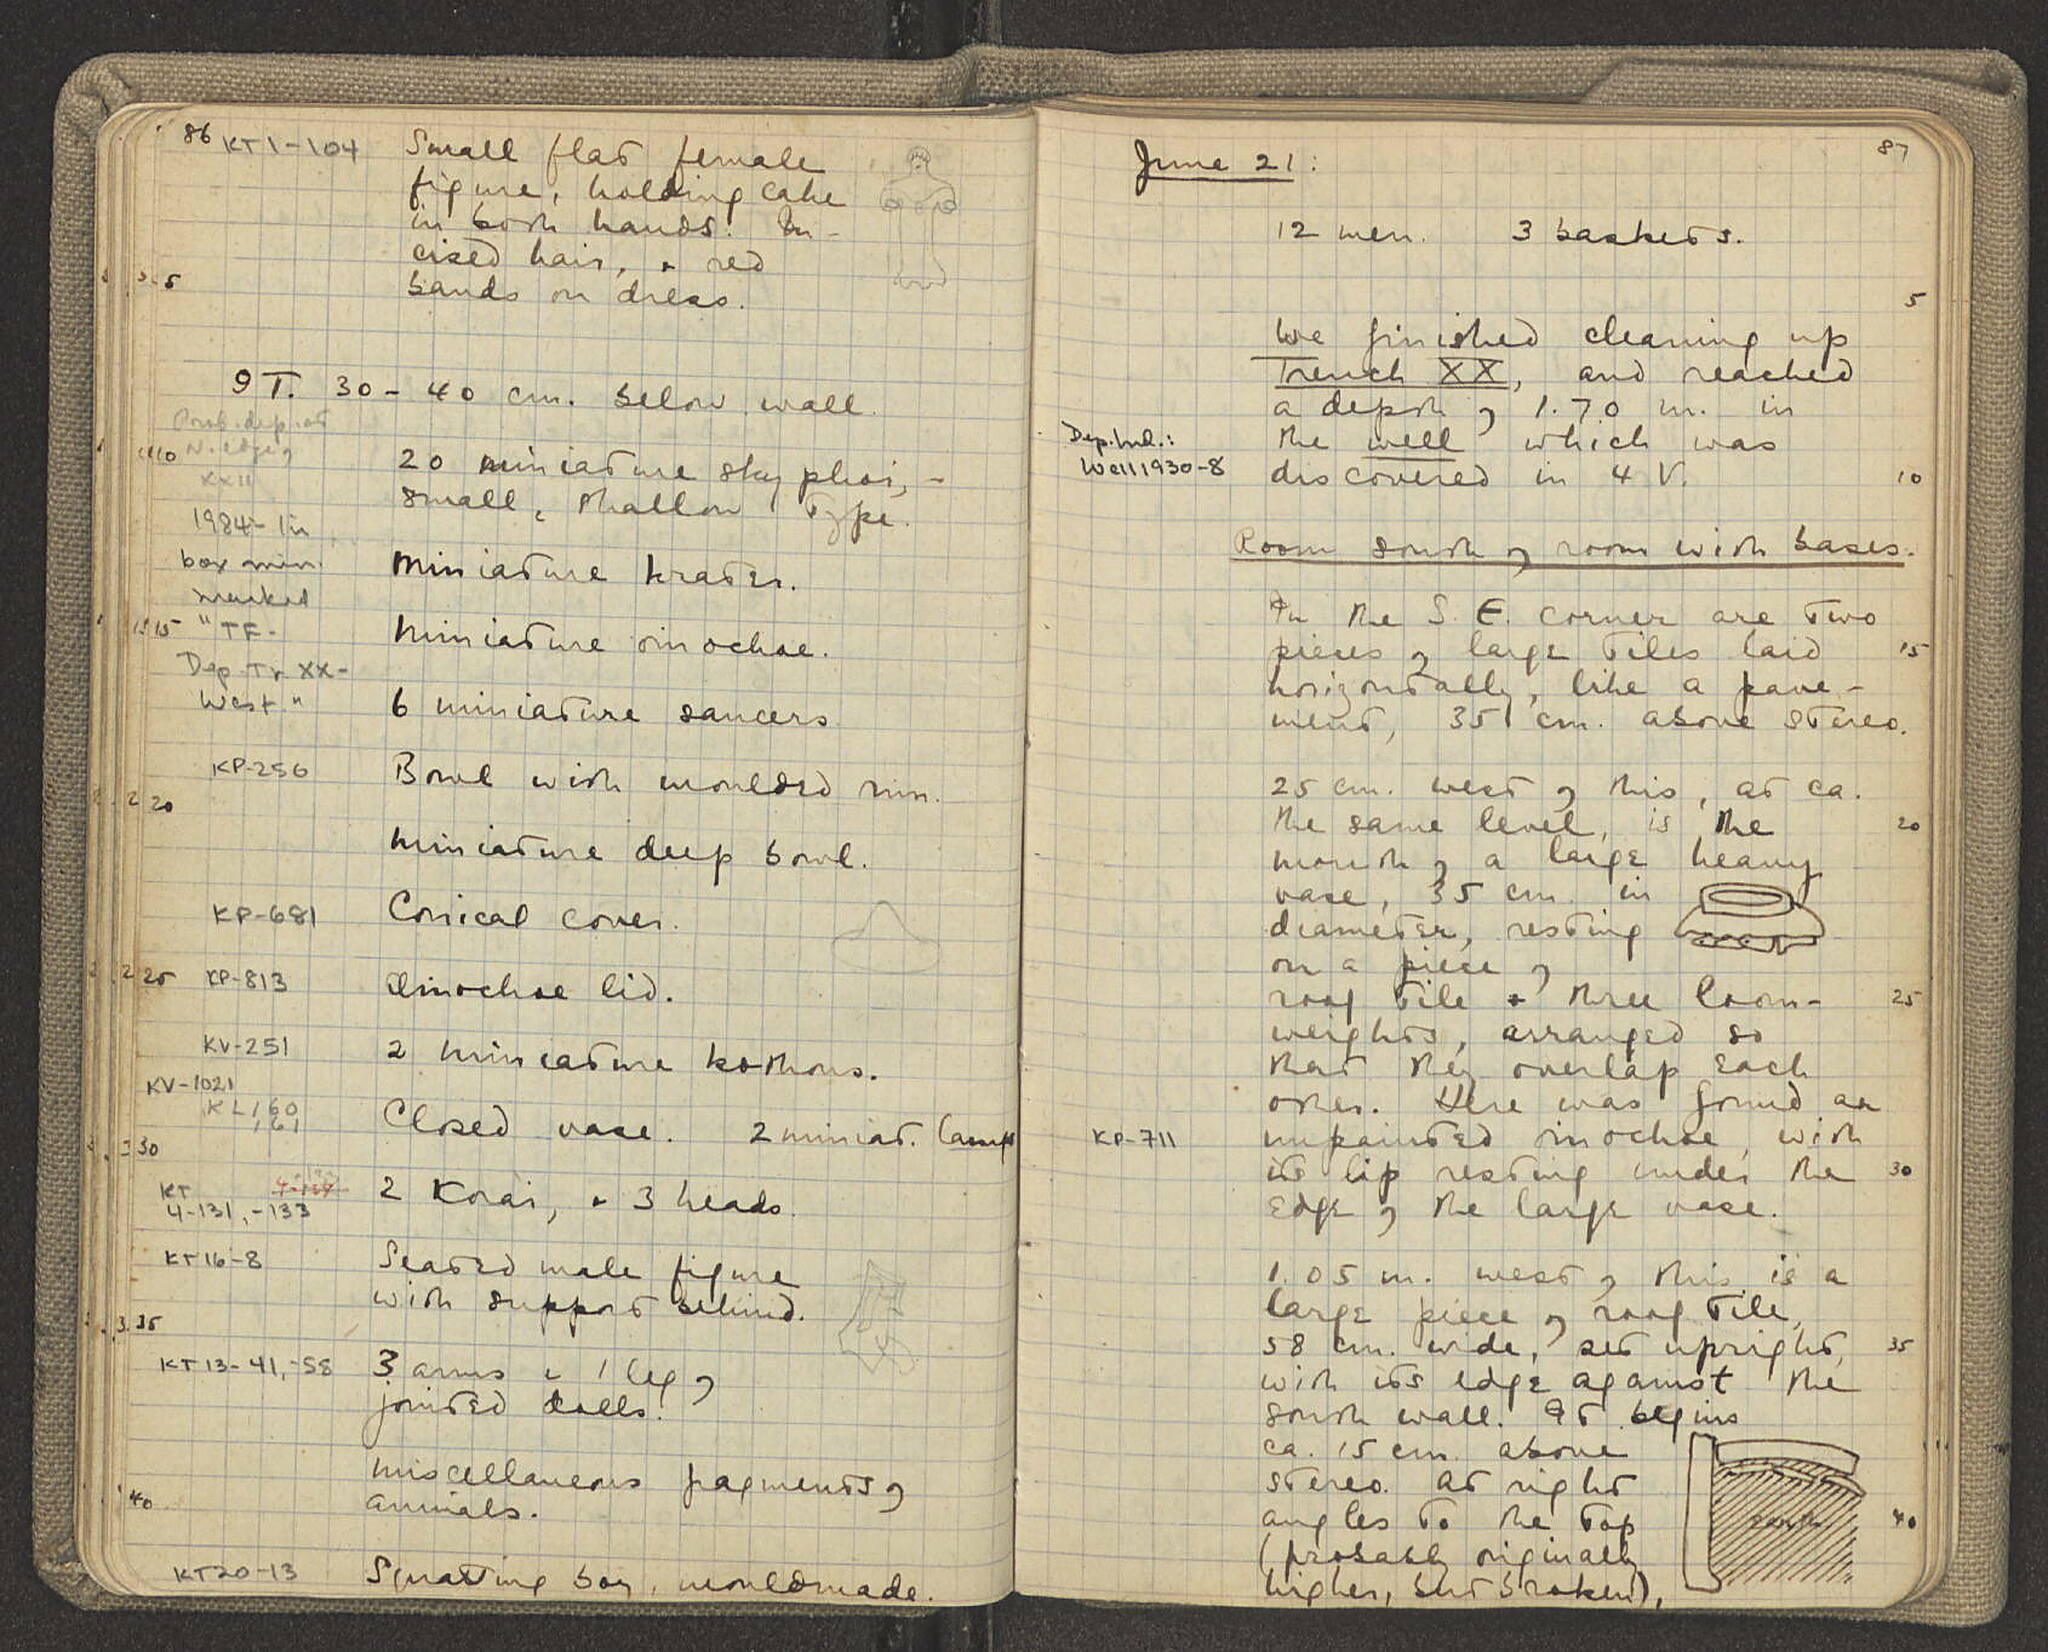 86 KT1-104 Small flat female
figure, holding cake
in both hands. In-
cised hair, + red
5 bands on dress.
9 T. 30-40 cm. below wall.
Prob. dep. at
N. edge of
XXII
10 20 miniature skyphoi, -
small, shallow type.
1984 - in
box min.
marked
15 "TF-
Dep. Tr XX-
West"
Miniature krater.
Miniature oinochoe.
6 miniature saucers
KP-256 Bowl with moulded rim.
20
Miniature deep bowl.
KP-681 Conical cover.
25 KP-813 Oinochoe lid.
KV-251 2 miniature kothons.
KV-1021
KL, 60
, 61
Closed vase. 2 miniat. lamps
30
KT
4-131, -133 2 Korai, + 3 heads.
KT16-8 Seated male figure
with support behind.
35
KT13-41, -58 3 arms + 1 leg of
jointed dolls.
Miscellaneous fragments of
40 animals.
KT20-13 Squatting boy, mouldmade.
87
June 21:
12 men. 3 baskets.
5
We finished cleaning up
Trench XX, and reached
a depth of 1.70 m. in
Dep. Ind.: the well which was
Well 1930-8 discovered in 4 V. 10
Room south of room with bases.
In the S. E. corner are two
pieces of large tiles laid 15
horizontally, like a pave-
ment, 35 cm. above stereo.
25 cm. west of this, at ca.
the same level, is the 20
mouth of a large heavy
vase, 35 cm in
diameter, resting
on a piece of
roof tile + three loom- 25
weights, arranged so
that they overlap each
other. Here was found an
KP-711 unpainted oinochoe, with
its lip resting under the 30
edge of the large vase.
1.05 m. west of this is a
large piece of roof tile,
58 cm. wide, set upright, 35
with its edge against the
south wall. It begins
ca. 15 cm. above
stereo. At right
angles to the top 40
earth
(probably originally
higher, but broken),